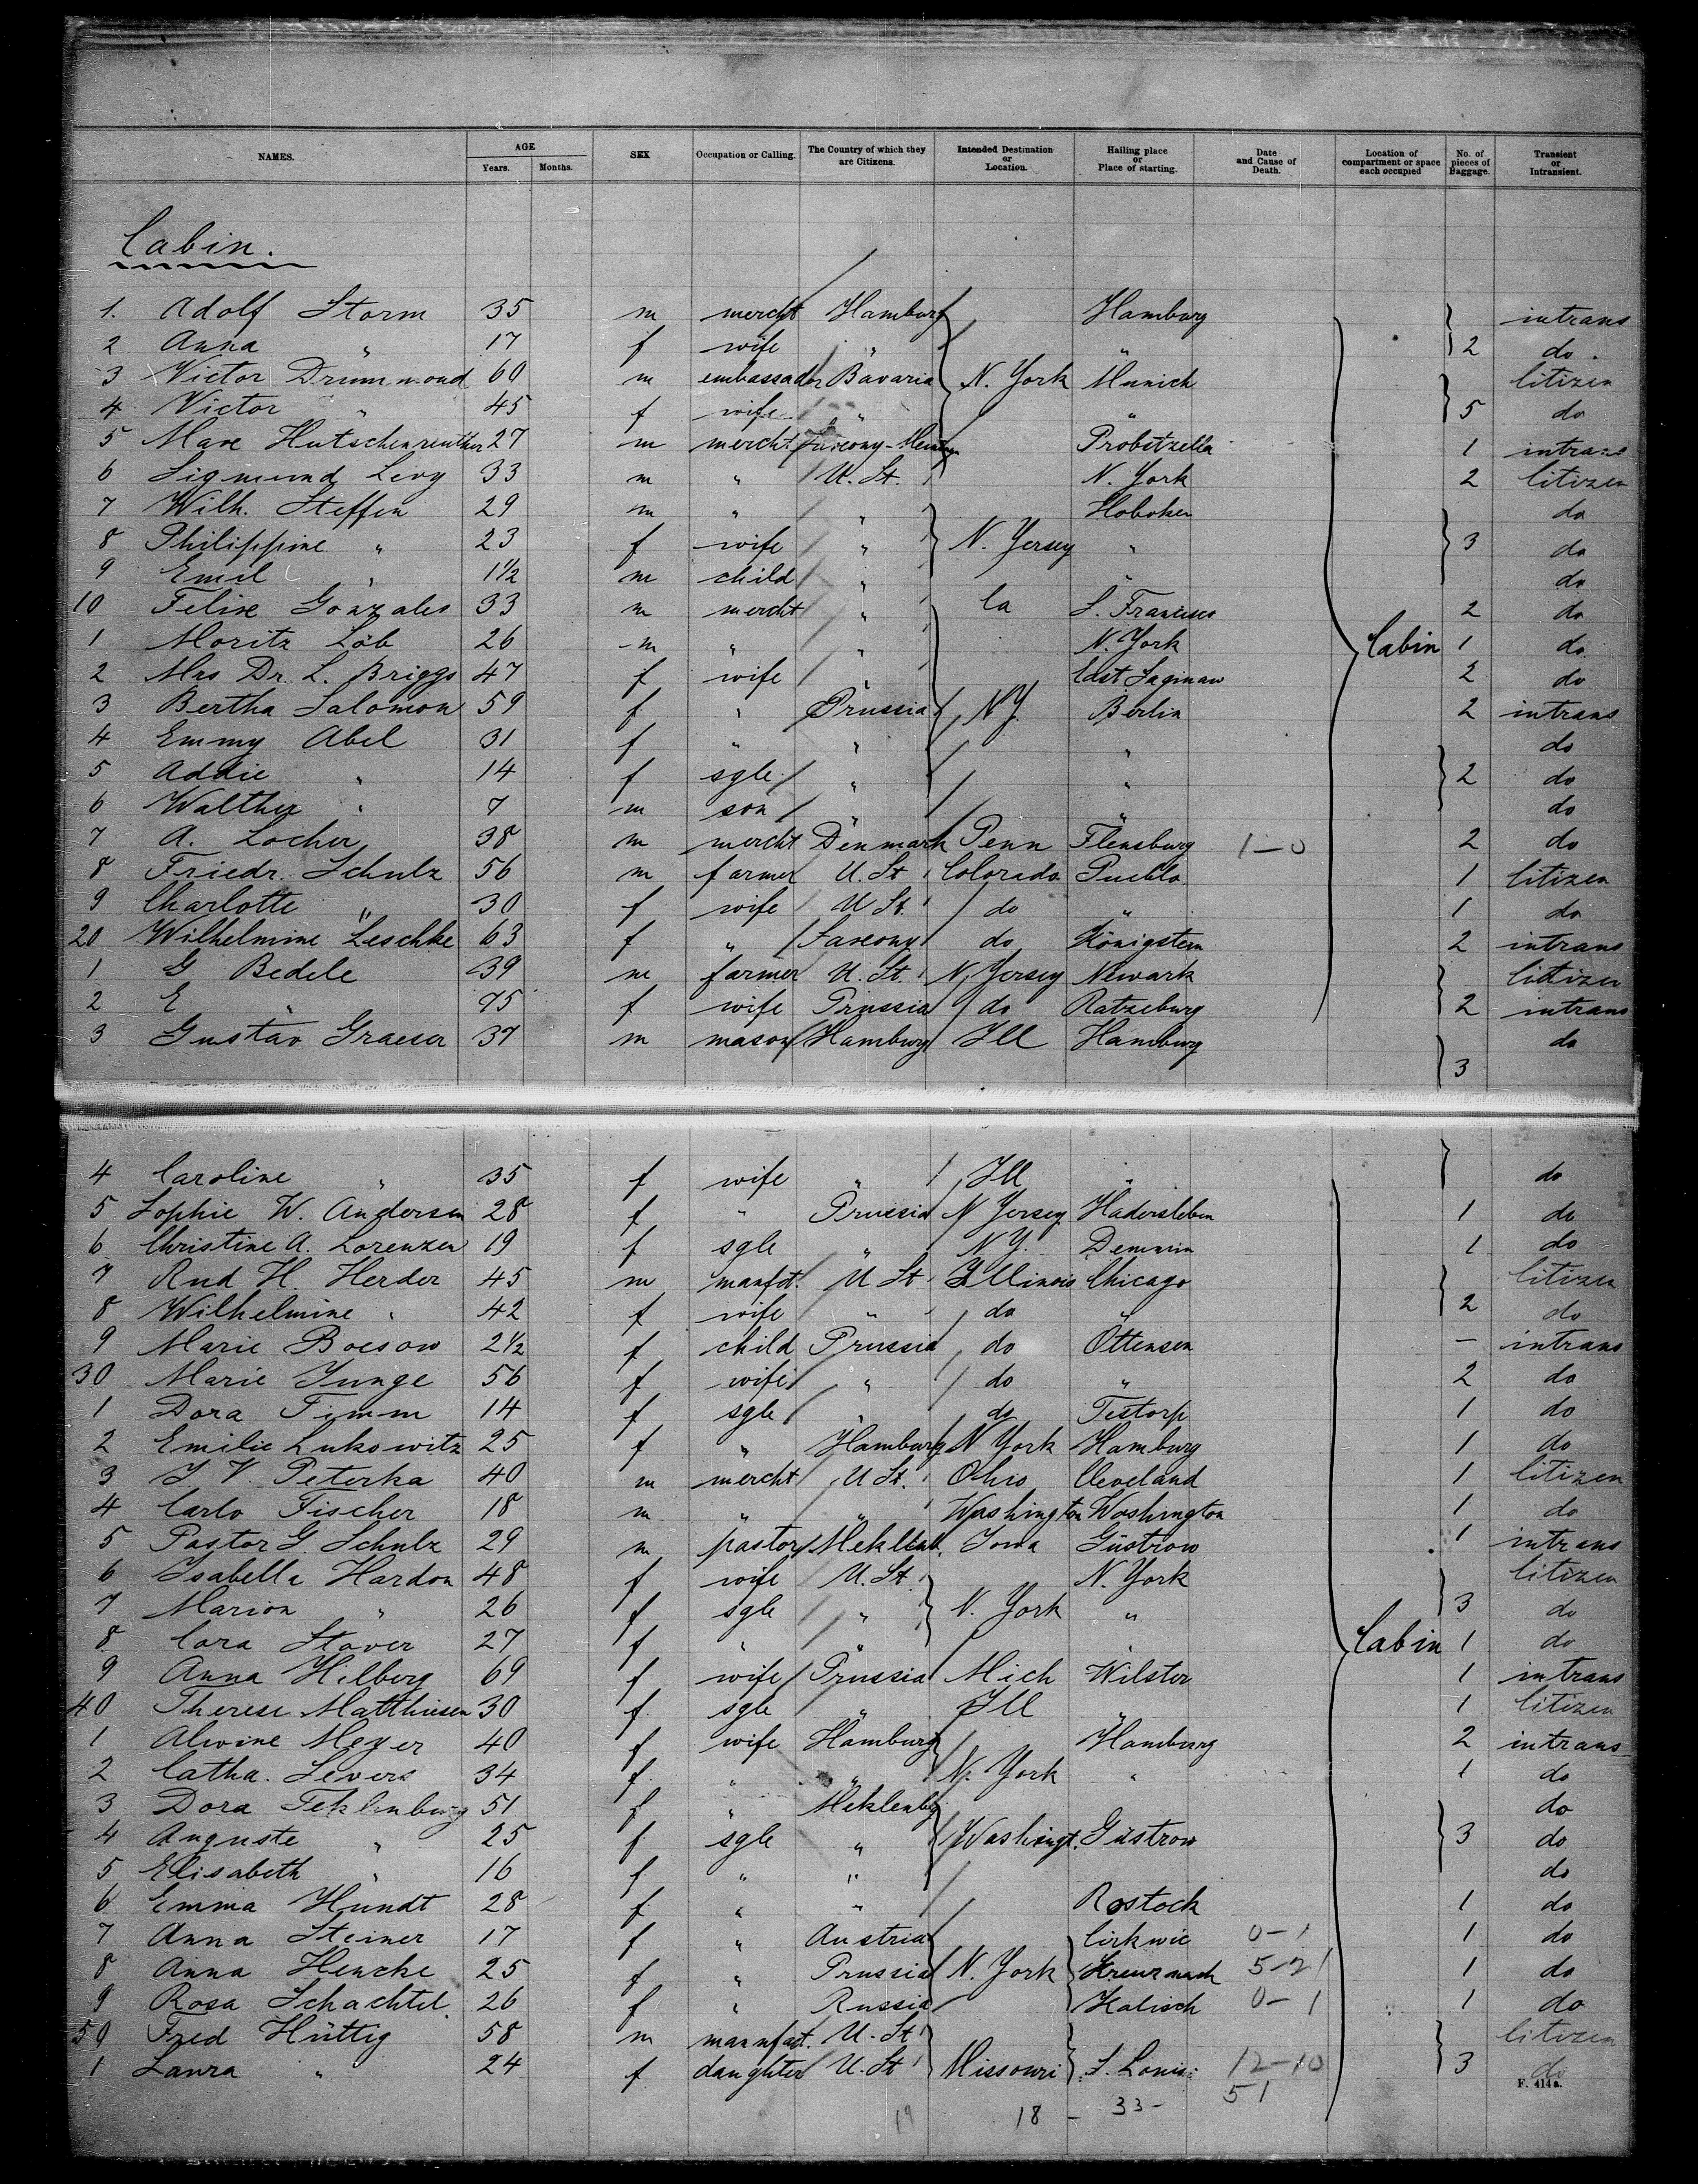 NAMES. AGE Years. Months. SEX Occupation or Calling. The Country of which they are Citizens. Intended Destination or Location. Hailing place or Place of starting. Date and Cause of Death. Location of compartment or space each occupied No. of pieces of Baggage. Transient or Intransient.
Cabin.
1. Adolf Storm 35 m mercht Hamburg Hamburg intrans
2 Anna " 17 f wife " " 2 do.
3 Victor Drummond 60 m embassador Bavaria N. York Munich Citizen
4 Victor " 45 f wife " " 5 do
5 Max Hutschenreuther 27 m mercht Probstzella 1 intrans
6 Sigmund Levy 33 m " U. St. N. York 2 Citizen
7 Wilh. Steffen 29 m " " Hoboken do
8 Philippine " 23 f wife " N. Yersey " 3 do
9 Emil " 1 1/2 m child " " do
10 Felix Gonzales 33 m mercht " Ca S. Francisco 2 do
1 Moritz Löb 26 m " " N. York Cabin 1 do
2 Mrs Dr. L. Briggs 47 f wife " East Saginaw 2 do
3 Bertha Salomon 59 f " Prussia N.Y. Berlin 2 intrans
4 Emmy Abel 31 f " " " do
5 Addie " 14 f sgle " " 2 do
6 Walther " 7 m son " " do
7 A. Locher 38 m mercht Denmark Penn Flensburg 1-0 2 do
8 Friedr. Schulz 56 m farmer U. St Colorado Pueblo 1 Citizen
9 Charlotte " 30 f wife U St. do " 1 do
20 Wilhelmine Leschke 63 f " Saxony do Königstein 2 intrans
1 G Bedele 39 m farmer U. St. N. Yersey Newark Citizen
2 E " 75 f wife Prussia do Ratzeburg 2 intrans
3 Gustav Graeser 37 m mason Hamburg Ill Hamburg do
3
4 Caroline " 35 f wife " Ill " do
5 Sophie W. Andersen 28 f " Prussia N Yersey Hadersleben 1 do
6 Christine A. Lorenzen 19 f sgle " N.Y. Demmin 1 do
7 Rud H. Herder 45 m manfct. U St Illinois Chicago Citizen
8 Wilhelmine " 42 f wife " do " 2 do
9 Marie Boesow 2 1/2 f child Prussia do Ottensen - intrans
30 Marie Junge 56 f wife " do " 2 do
1 Dora Timm 14 f sgle " do Testorf 1 do
2 Emilie Lukowitz 25 f " Hamburg N York Hamburg 1 do
3 J V. Peterka 40 m mercht U St. Ohio Cleveland 1 Citizen
4 Carlo Fischer 18 m " " Washington Washington 1 do
5 Pastor G Schulz 29 m pastor Meklenb. Iowa Güstrow 1 intrans
6 Isabella Hardon 48 f wife U. St. N. York Citizen
7 Marion " 26 f sgle " N. York " 3 do
8 Cora Stover 27 f " " " Cabin 1 do
9 Anna Hilberg 69 f wife Prussia Mich Wilster 1 intrans
40 Therese Matthiesen 30 f sgle " Ill " 1 Citizen
1 Alwine Meyer 40 f wife Hamburg Hamburg 2 intrans
2 Catha. Severs 34 f " " N. York " 1 do
3 Dora Teklenburg 51 f " Meklenbg do
4 Auguste " 25 f sgle " Washingt. Güstrow 3 do
5 Elisabeth " 16 f " " do
6 Emma Hundt 28 f " " Rostock 1 do
7 Anna Steiner 17 f " Austria Cirkwic 0-1 1 do
8 Anna Hencke 25 f " Prussia N. York Kreuznach 5-21 1 do
9 Rosa Schachtel 26 f " Russia Kalisch 0-1 1 do
50 Fred Hüttig 58 m manufact. U. St Citizen
1 Laura " 24 f daughter U. St Missouri S. Louis 12-10 3 do
51
19 18 - 33 -
F. 414 a.